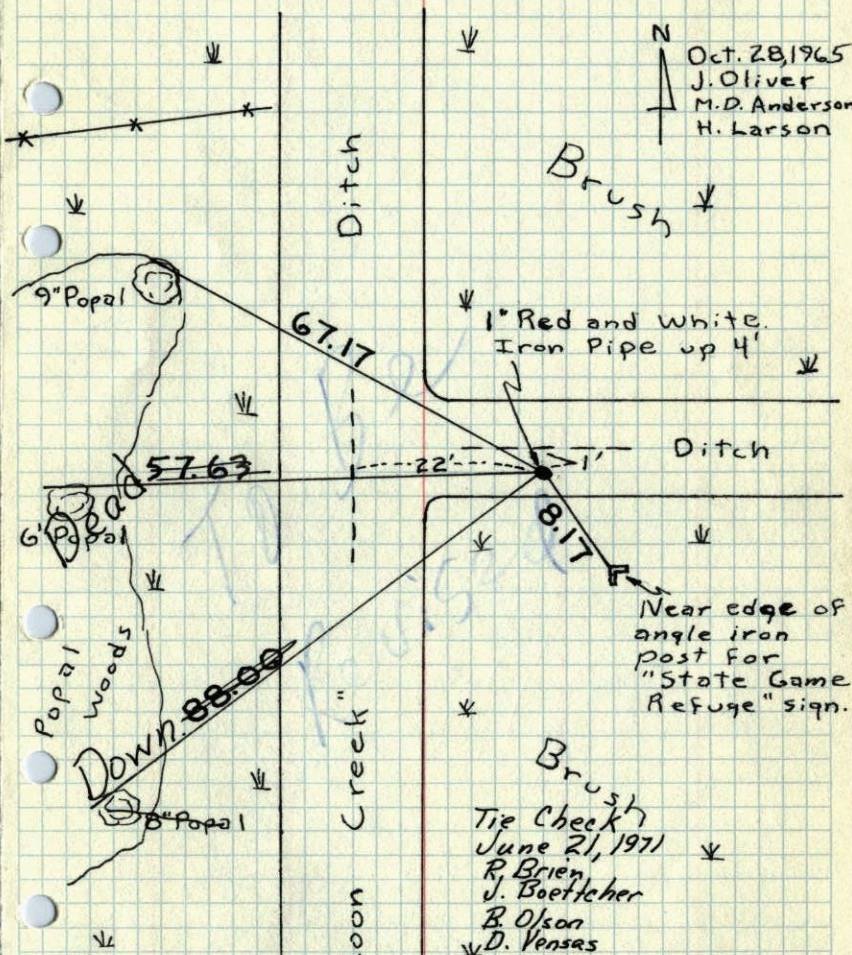 N
Oct. 28, 1965
J. Oliver
M.D. Anderson
H. Larson
Ditch
Brush
9" Popal
67.17
1" Red and White
Iron Pipe up 4'
57.63
22'
1'
Ditch
Dead
6" Popal
8.17
To Be
Revised
Near edge of
angle iron
post for
"State Game
Refuge" sign.
Popal
Woods
Down
88.00
8" Popal
oon Creek"
Brush
Tie Check
June 21, 1971
R. Brien
J. Boettcher
B. Olson
D. Vensas